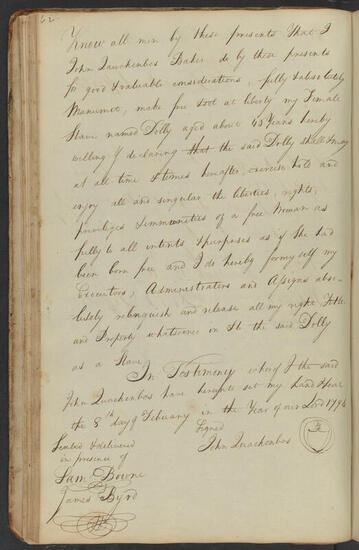 62.
Know all men by these presents That I
John Quackenbos Baker do by these presents
for good & valuable considerations, fully & absolutely
Manumit, make free & set at liberty my Female
Slave named Dolly aged about 45 Years hereby
willing & declaring that the said Dolly shall & may
at all time & times hereafter, exercise hold and
enjoy all and singular the liberties, rights,
priviliges & immunities of a free Woman as
fully to all intents & purposes as if She had
been born free and I do hereby for my self my
Executors, Administrators and Assigns abso-
lutely relinquish and release all my right title
and Property whatsoever in & to the said Dolly
as a Slave
In Testimony whereof I the said
John Quackenbos have hereunto set my hand & seal
the 8th day of February in the Year of our Lord 179
Signed
Sealed & delivered
in presence of
John Quackenbos
Sam Bowne
James Byrd